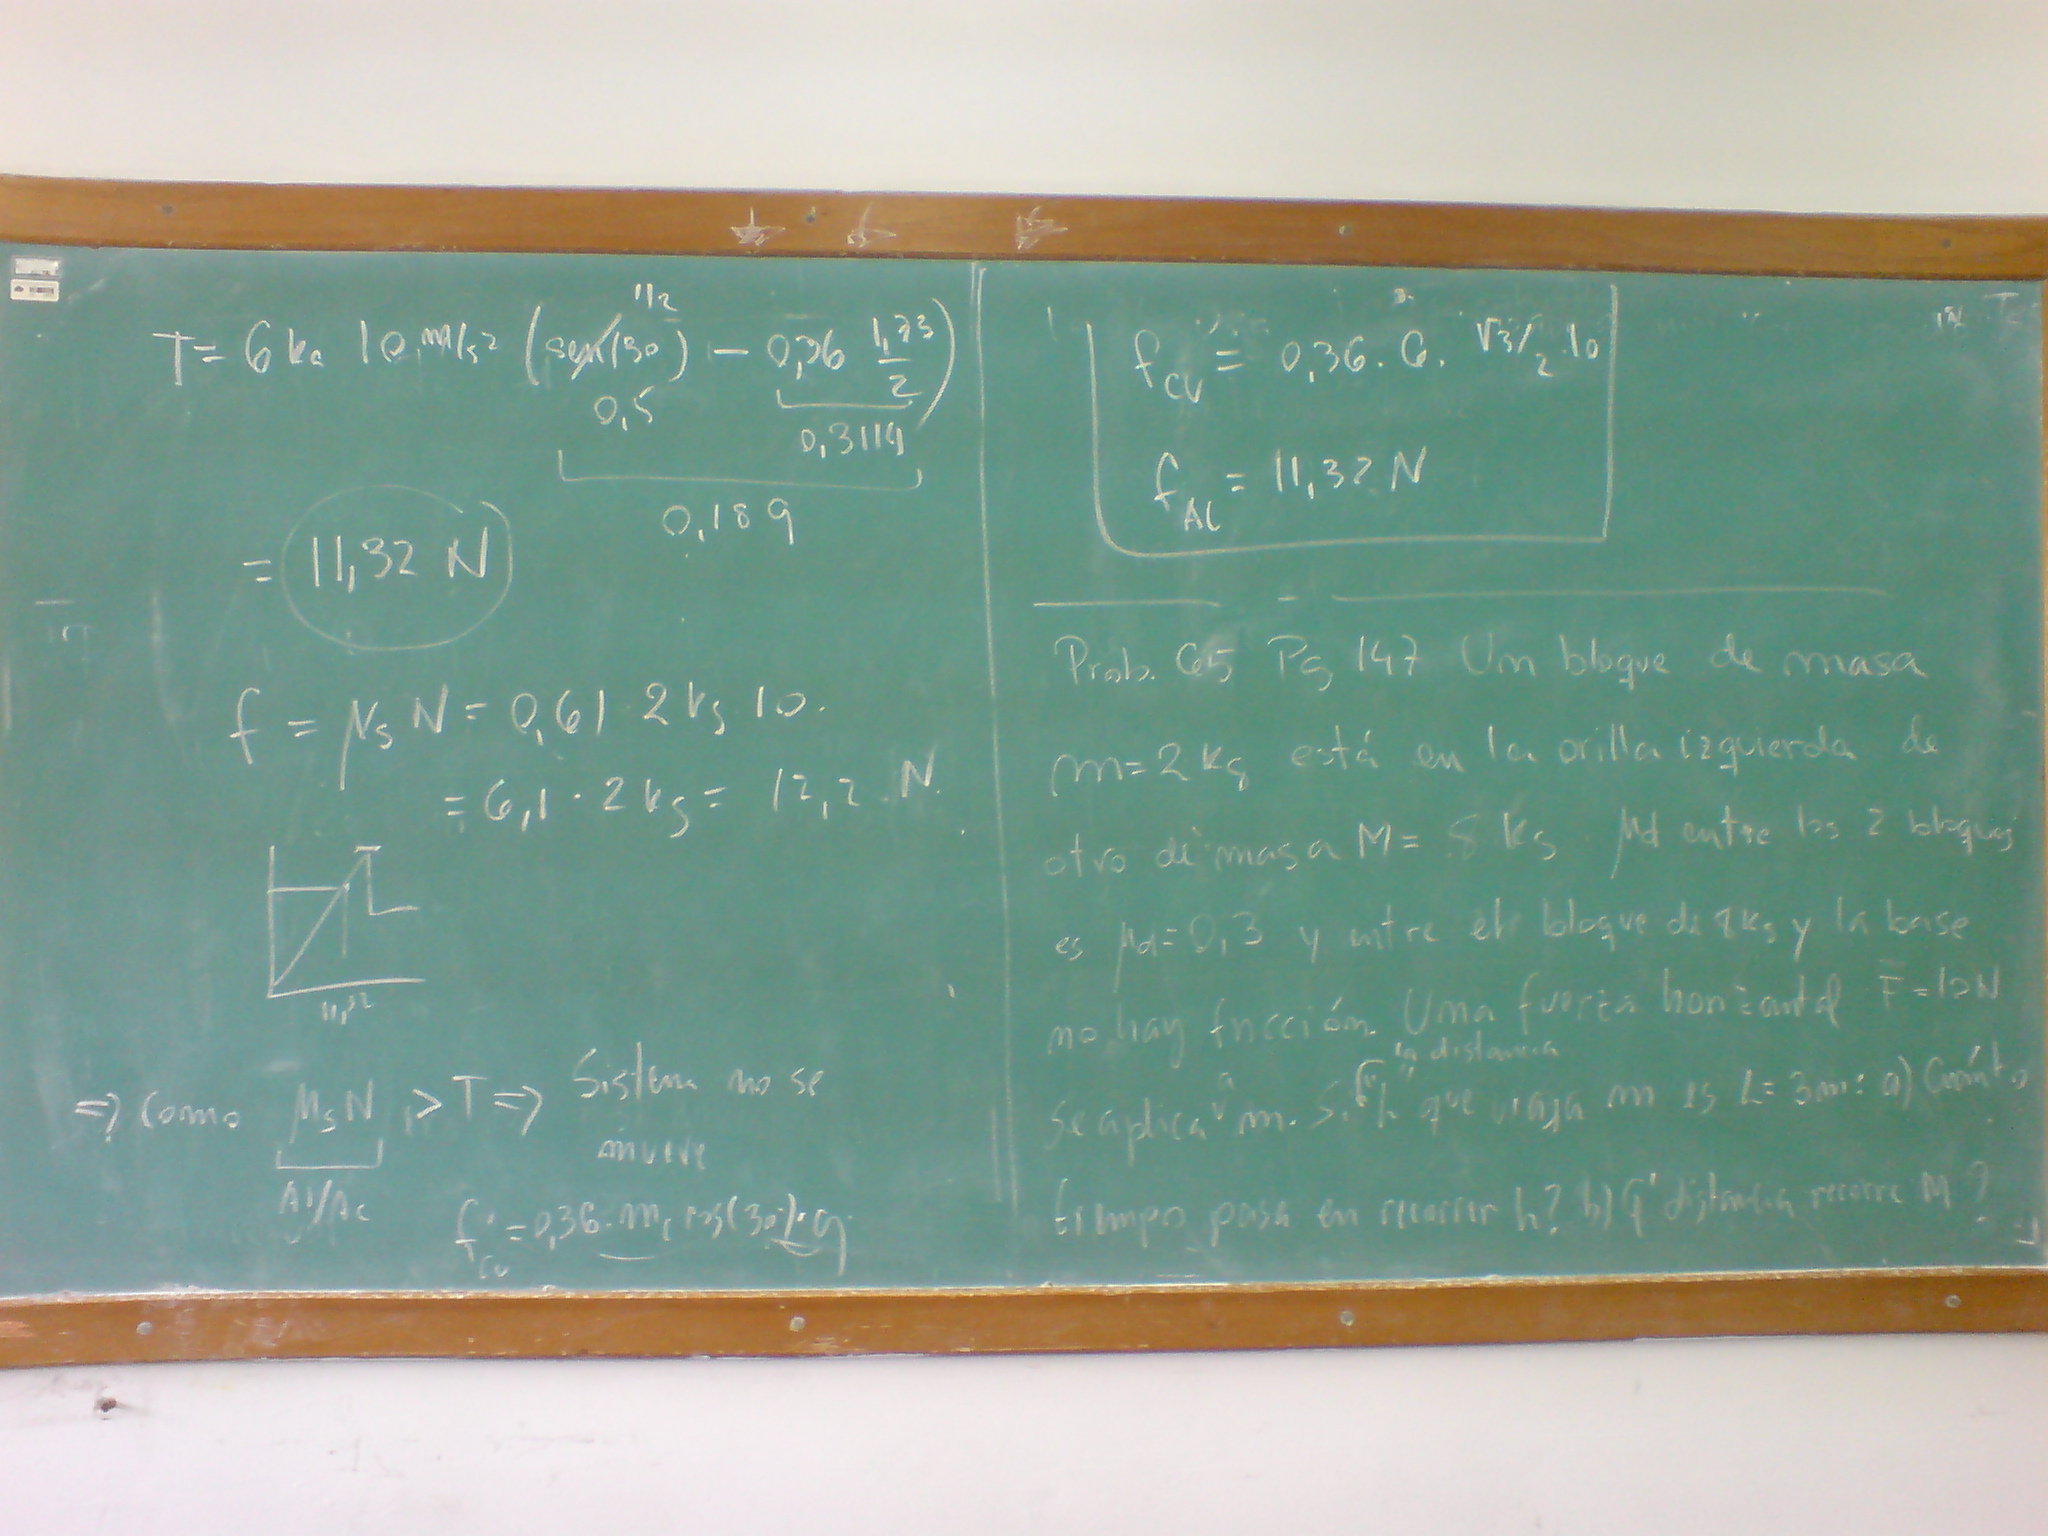 T = 6 kg 10 m/s² (sen(30) - 0,36 1,73/2)
1/2
0,5
0,3114
0,189
= 11,32 N
f = μs N = 0,61 · 2 kg 10.
= 6,1 · 2 kg = 12,2 N.
11,32
⇒ Como μs N > T ⇒ Sistema no se
mueve
Al/Ac
fcu = 0,36 · mc cos(30) · g
fcu = 0,36 · 6 · √3/2 · 10
fAC = 11,32 N
Prob. 65 Pg 147 Un bloque de masa
m = 2 kg está en la orilla izquierda de
otro de masa M = 8 kg. μd entre los 2 bloques
es μd = 0,3 y entre el bloque de 8 kg y la base
no hay fricción. Una fuerza horizontal F = 10 N
se aplica a m. Si la distancia que viaja m es L = 3m: a) Cuánto
tiempo pasa en recorrer L? b) Q' distancia recorre M?